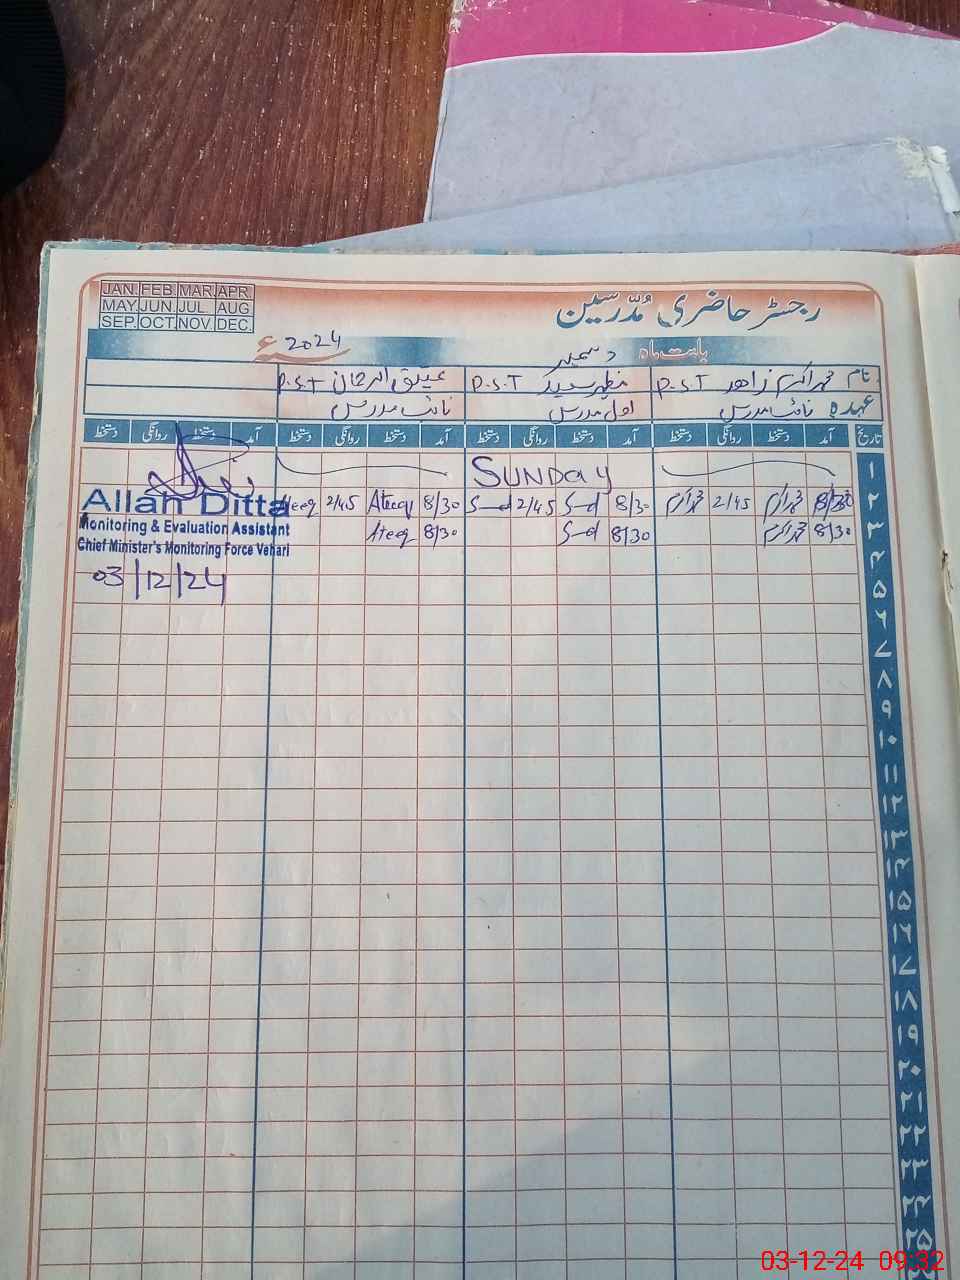 JAN. FEB MAR APR.
MAY. JUN JUL. AUG
SEP. OCT. NOV. DEC.
رجسٹر حاضری مُدّرسین
بابت ماہ دسمبر 2024ء
نام محمد اکرم زاھد P.S.T مظہر سعید P.S.T عتیق الرحمان P.S.T
عہدہ نائب مدرس اول مدرس نائب مدرس
تاریخ آمد دستخط روانگی دستخط آمد دستخط روانگی دستخط آمد دستخط روانگی دستخط آمد دستخط روانگی دستخط
۱ SUNDAY
۲ 8/30 محمد اکرم 2/45 محمد اکرم 8/30 2/45 8/30 Ateeq 2/45 Ateeq
۳ 8/30 محمد اکرم 8/30 8/30 Ateeq
Allah Ditta
Monitoring & Evaluation Assistant
Chief Minister's Monitoring Force Vehari
03/12/24
۴
۵
۶
۷
۸
۹
۱۰
۱۱
۱۲
۱۳
۱۴
۱۵
۱۶
۱۷
۱۸
۱۹
۲۰
۲۱
۲۲
۲۳
۲۴
۲۵
03-12-24 09:32